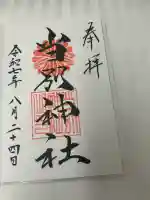 奉拝
当別神社
令和七年八月二十四日